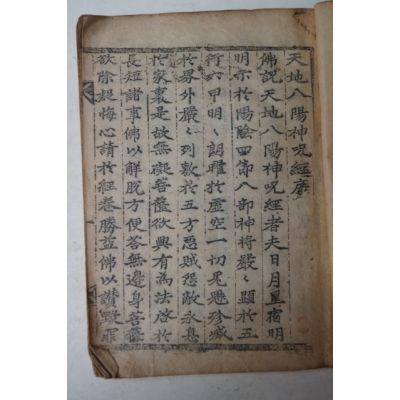 天地八陽神呪經序
佛說天地八陽神呪經者夫日月星宿明
明示於陽陰四節八部神将嚴〻顕於五
行六甲明〻朗曜於虛空一切鬼魅珍藏
於界外嚴〻列敷於五方惡賊怨敵永息
於家裏是故無礙菩薩欲興有為法啓於
長短諸事佛以解脫方便答無邊身菩薩
欲除疑悔心請於經卷勝益佛以讃毀罪